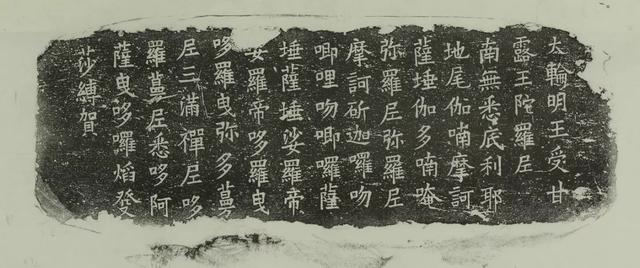 大輪明王受甘
露王陀羅尼
南無悉底利耶
地尾伽喃摩訶
薩埵伽多喃唵
弥羅尼弥羅尼
摩訶斫迦囉吻
唧哩吻唧囉薩
埵薩埵娑羅帝
女羅帝哆羅曳
哆羅曳弥多䓪
尼三滿禪尼哆
羅䓪尼悉哆阿
薩曳哆囉焰癹
莎縛賀